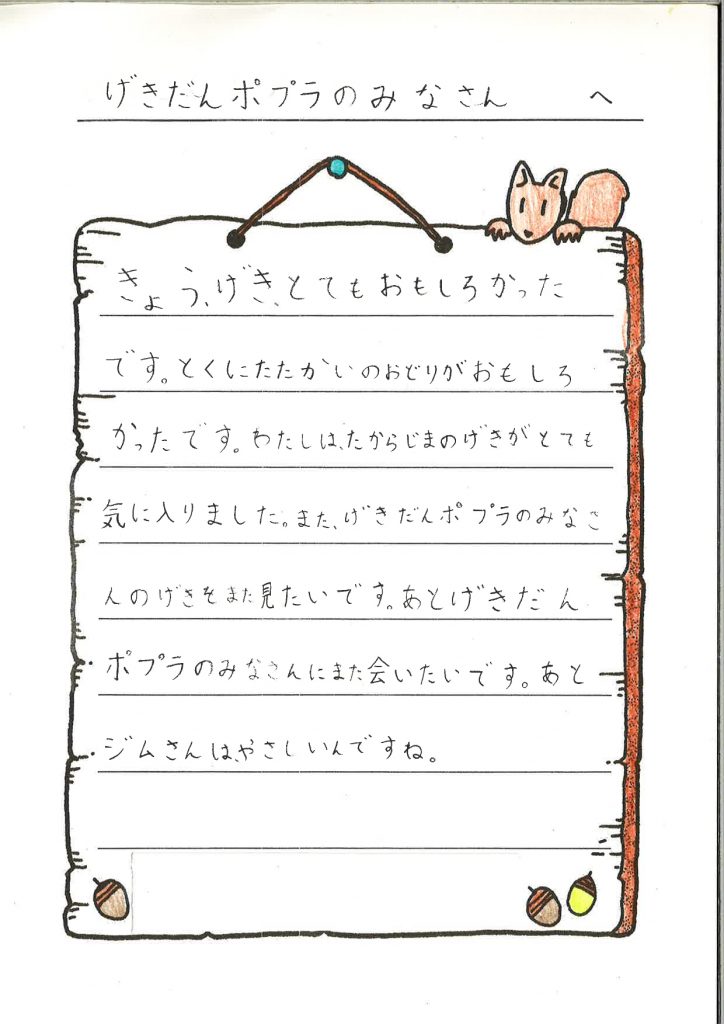 げきだんポプラのみなさん　へ
きょう、げき、とてもおもしろかった
です。とくにたたかいのおどりがおもしろ
かったです。わたしは、たからじまのげきがとても
気に入りました。また、げきだんポプラのみなさ
んのげきをまた見たいです。あとげきだん
ポプラのみなさんにまた会いたいです。あと
ジムさんは、やさしいんですね。